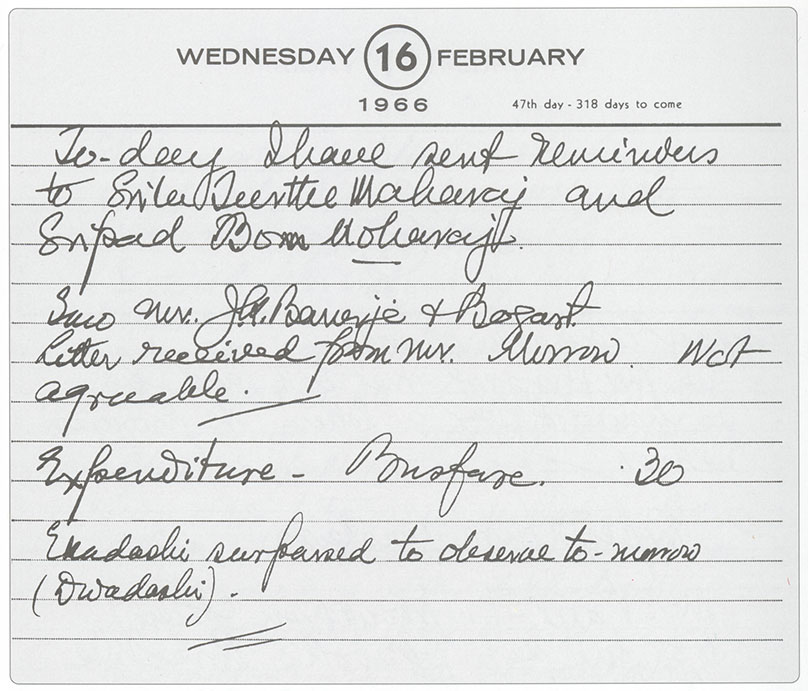 WEDNESDAY 16 FEBRUARY
1966 47th day - 318 days to come
To-day I have sent reminders
to Srila Teertha Maharaj and
Sripad Bon Moharaj.
Mr. J. Banerje & Bogart
Letter received from Mr. Morrow. Not
agreeable.
Expenditure - Busfare. .30
Ekadashi surpassed to observe to-morrow
(Dwadashi).